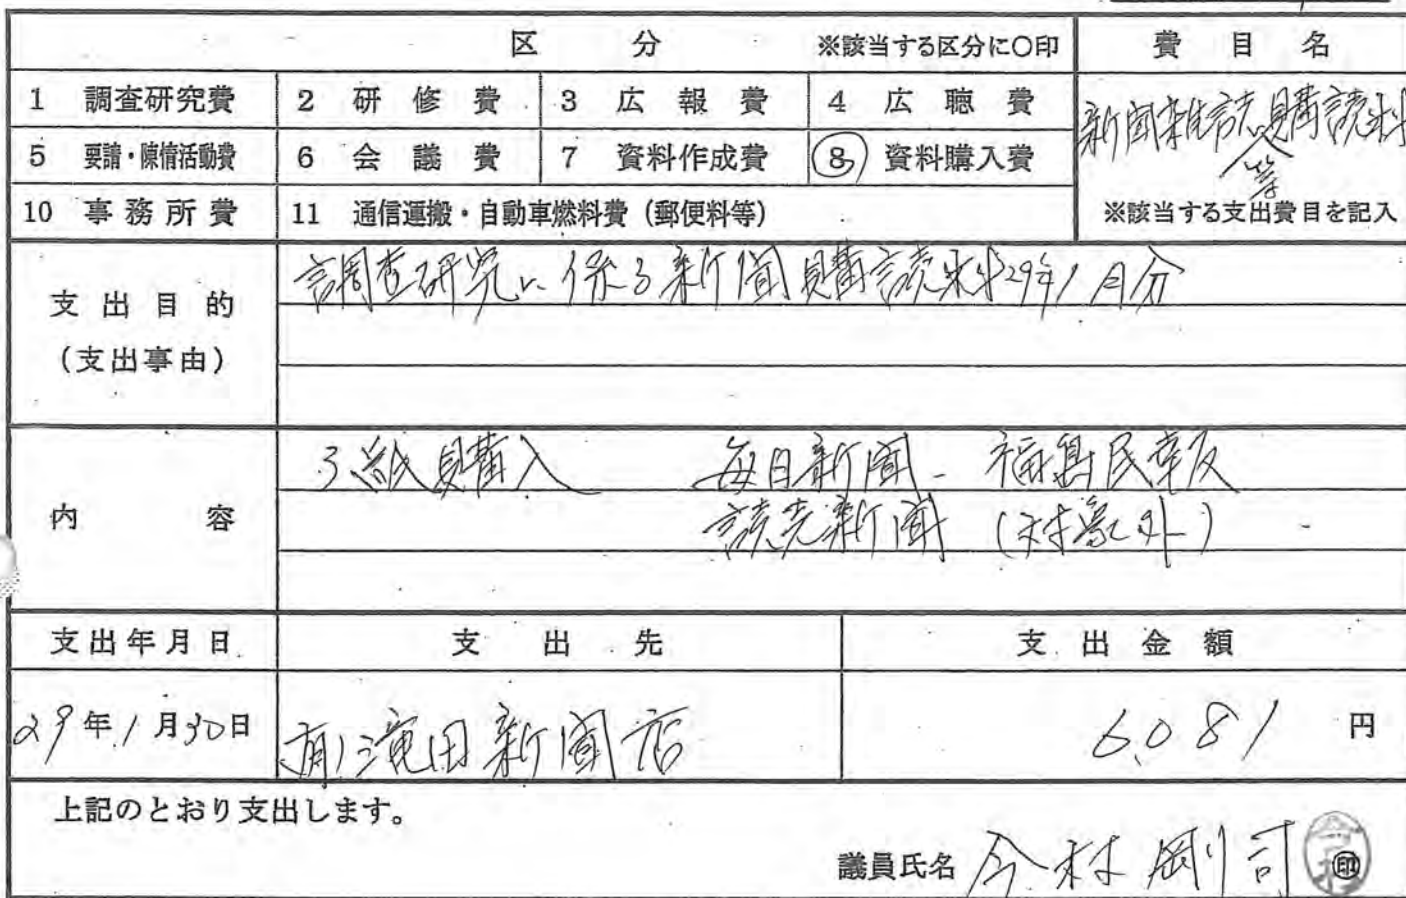 区 分 ※該当する区分に〇印 費 目 名
1 調査研究費 2 研 修 費 3 広 報 費 4 広 聴 費
新聞雑誌等購読料
5 要請・陳情活動費 6 会 議 費 7 資料作成費 8 資料購入費
10 事務所費 11 通信運搬・自動車燃料費(郵便料等) ※該当する支出費目を記入
支出目的
(支出事由)
調査研究に係る新聞購読料29年1月分
内 容
3紙購入 毎日新聞、福島民報
読売新聞 (対象外)
支出年月日 支 出 先 支 出 金 額
29年1月30日 (有)滝田新聞店 6,081 円
上記のとおり支出します。
議員氏名 今村剛司 印